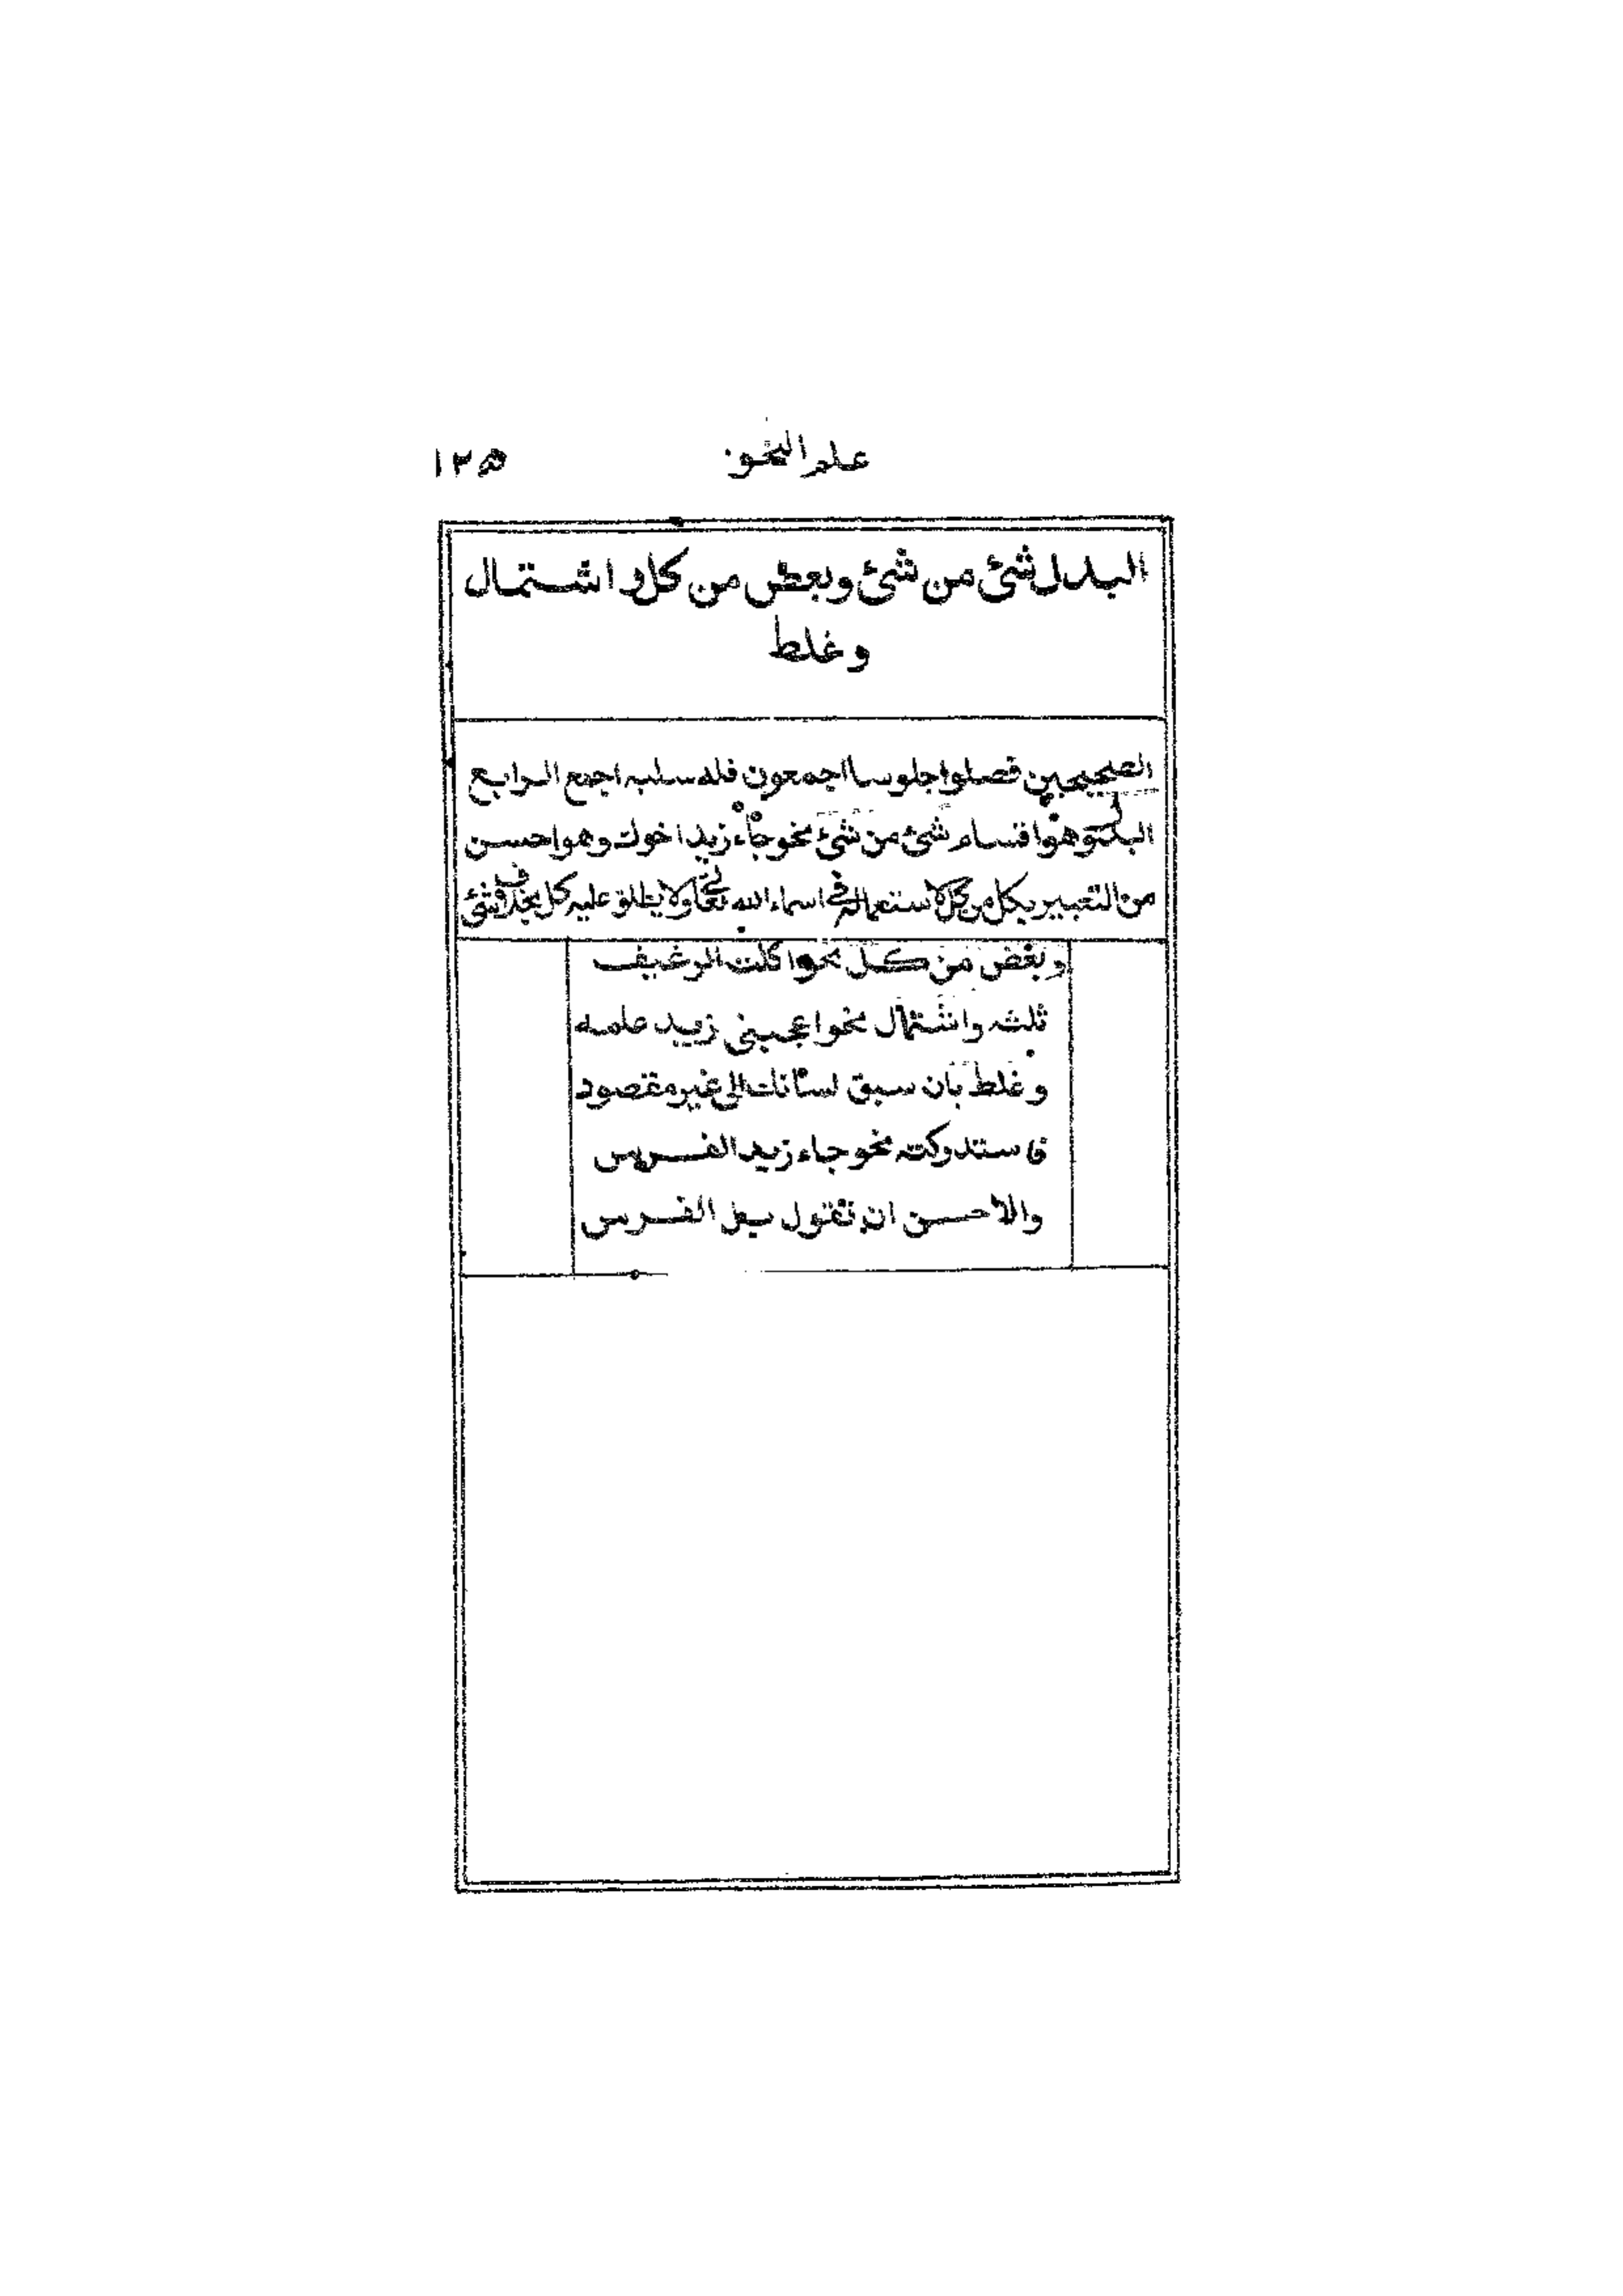 علم النحو ١٢٥
البدل شئ من شئ وبعض من كل واشتمال
وغلط
الصحيحين فصلوا جلوسا اجمعون فله سلبه اجمع الرابع
البدل وهو اقسام شئ من شئ نحو جاء زيد اخوك وهو احسن
من التعبير بكل من كل لاستعماله في اسماء الله تعالى ولا يطلق عليه كل بخلاف شئ
وبعض من كل نحو اكلت الرغيف
ثلثه واشتمال نحو اعجبنى زيد علمه
وغلط بان سبق لسانك الى غير مقصود
فاستدركته نحو جاء زيد الفرس
والاحسن ان تقول بل الفرس